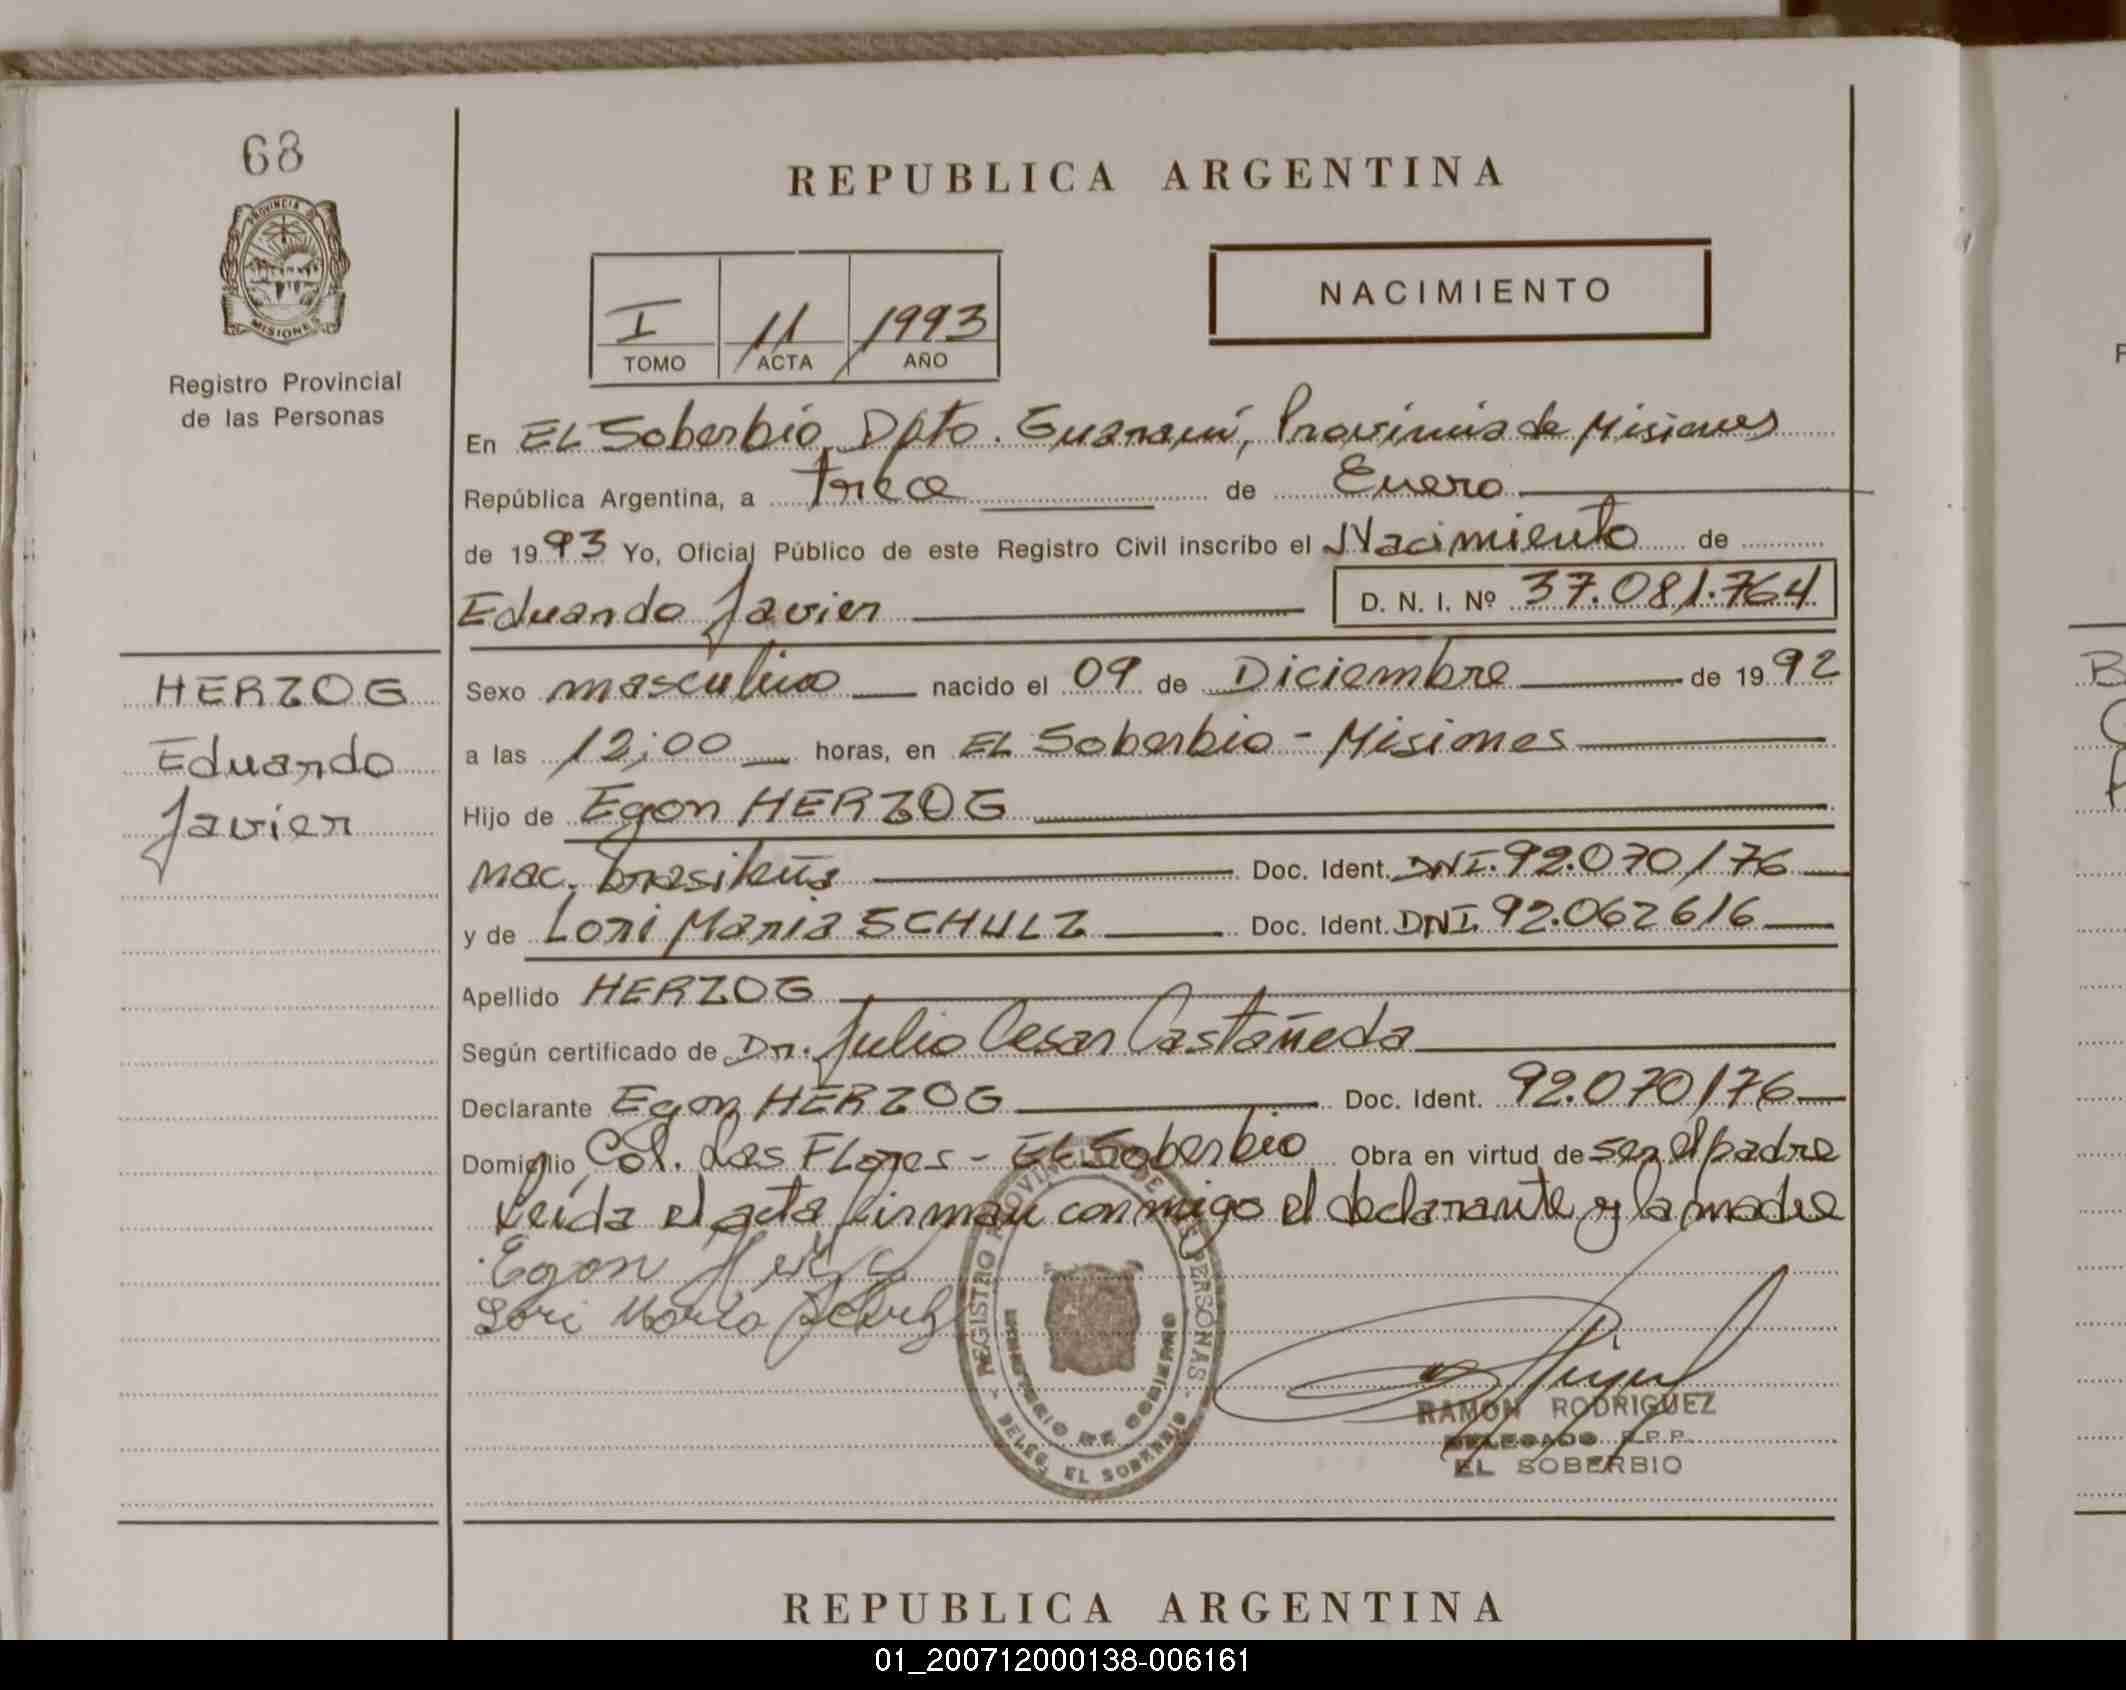 68
PROVINCIA DE
MISIONES
Registro Provincial
de las Personas
HERZOG
Eduardo
Javier
REPUBLICA ARGENTINA
I 11 1993
TOMO ACTA AÑO
NACIMIENTO
En EL Soberbio, Dpto. Guaraní, Provincia de Misiones
República Argentina, a trece de Enero
de 1993 Yo, Oficial Público de este Registro Civil inscribo el Nacimiento de
Eduardo Javier D. N. I. Nº 37.081.764
Sexo masculino nacido el 09 de Diciembre de 1992
a las 12;00 horas, en EL Soberbio - Misiones
Hijo de Egon HERZOG
nac. brasileña Doc. Ident. DNI. 92.070176
y de Lori Maria SCHULZ Doc. Ident. DNI. 92.062616
Apellido HERZOG
Según certificado de Dr. Julio Cesar Castañeda
Declarante Egon HERZOG Doc. Ident. 92.070176
Domicilio Col. Las Flores - EL Soberbio Obra en virtud de ser el padre
Leída el acta firman conmigo el declarante y la madre
Egon Herzog
Lori Maria Schulz
REGISTRO PROVINCIAL DE LAS PERSONAS
MINISTERIO DE GOBIERNO
- DELEG. EL SOBERBIO -
RAMON RODRIGUEZ
DELEGADO R.P.P.
EL SOBERBIO
REPUBLICA ARGENTINA
01_200712000138-006161